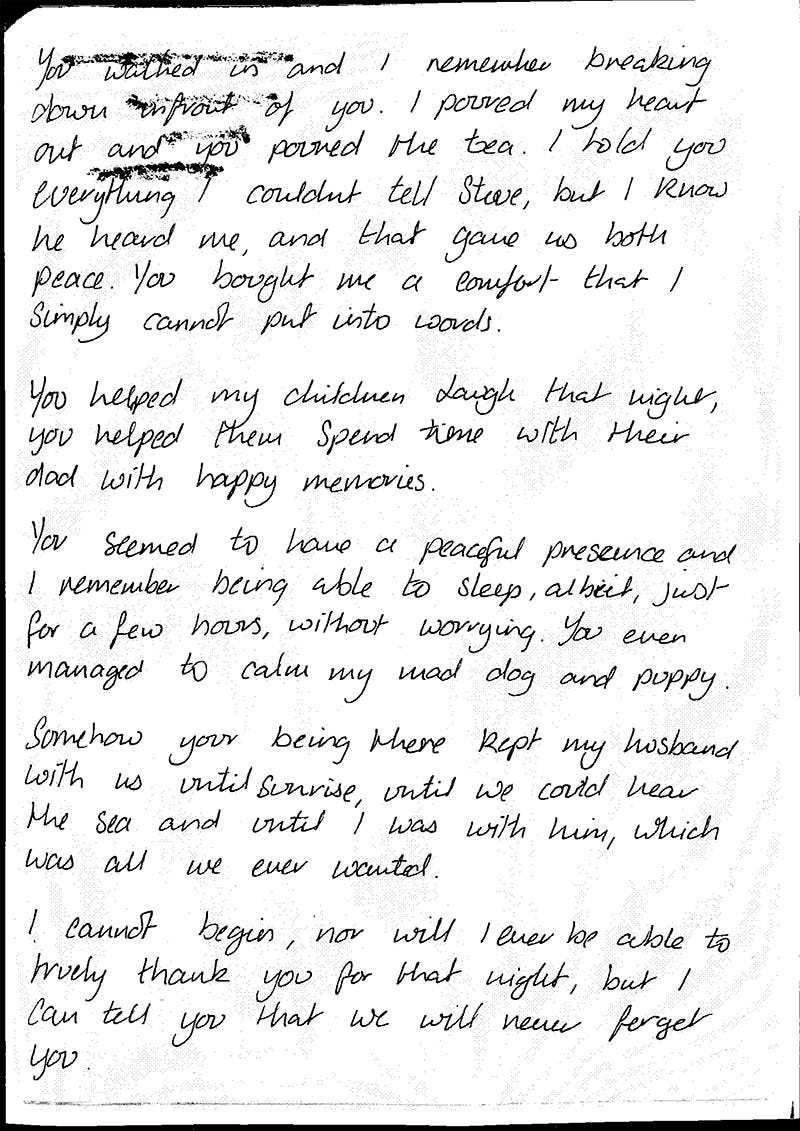 You walked in and I remember breaking
down infront of you. I poured my heart
out and you poured the tea. I told you
everything I couldnt tell Steve, but I know
he heard me, and that gave us both
peace. You bought me a comfort that I
simply cannot put into words.
You helped my children laugh that night,
you helped them spend time with their
dad with happy memories.
You seemed to have a peaceful presence and
I remember being able to sleep, albeit, just
for a few hours, without worrying. You even
managed to calm my mad dog and puppy.
Somehow your being there kept my husband
with us until sunrise, until we could hear
the sea and until I was with him, which
was all we ever wanted.
I cannot begin, nor will I ever be able to
truely thank you for that night, but I
can tell you that we will never forget
you.